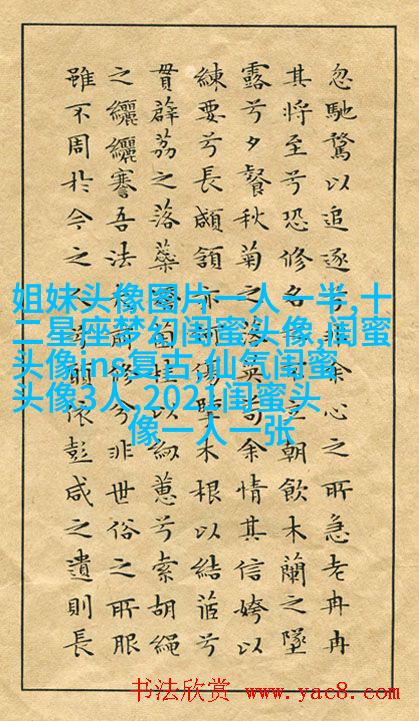 忽馳騖以追逐兮余心之所急老冉冉
其將至兮恐修名立朝飲木蘭之墜
露兮夕餐秋菊之落英苟余情其信姱以
練要兮長顑頷亦何傷擥木根以結茝兮
貫薜荔之落蘂矯菌桂以紉蕙兮索胡繩
之纚纚謇吾法前修兮非世俗之所服
雖不周於今之人願依彭咸之遺則長
姐妹头像图片一人一半,十
二星座梦幻闺蜜头像,闺蜜
头像ins复古,仙气闺蜜
头像3人,2021闺蜜头
像一人一张
书法欣赏 www.yac8.com